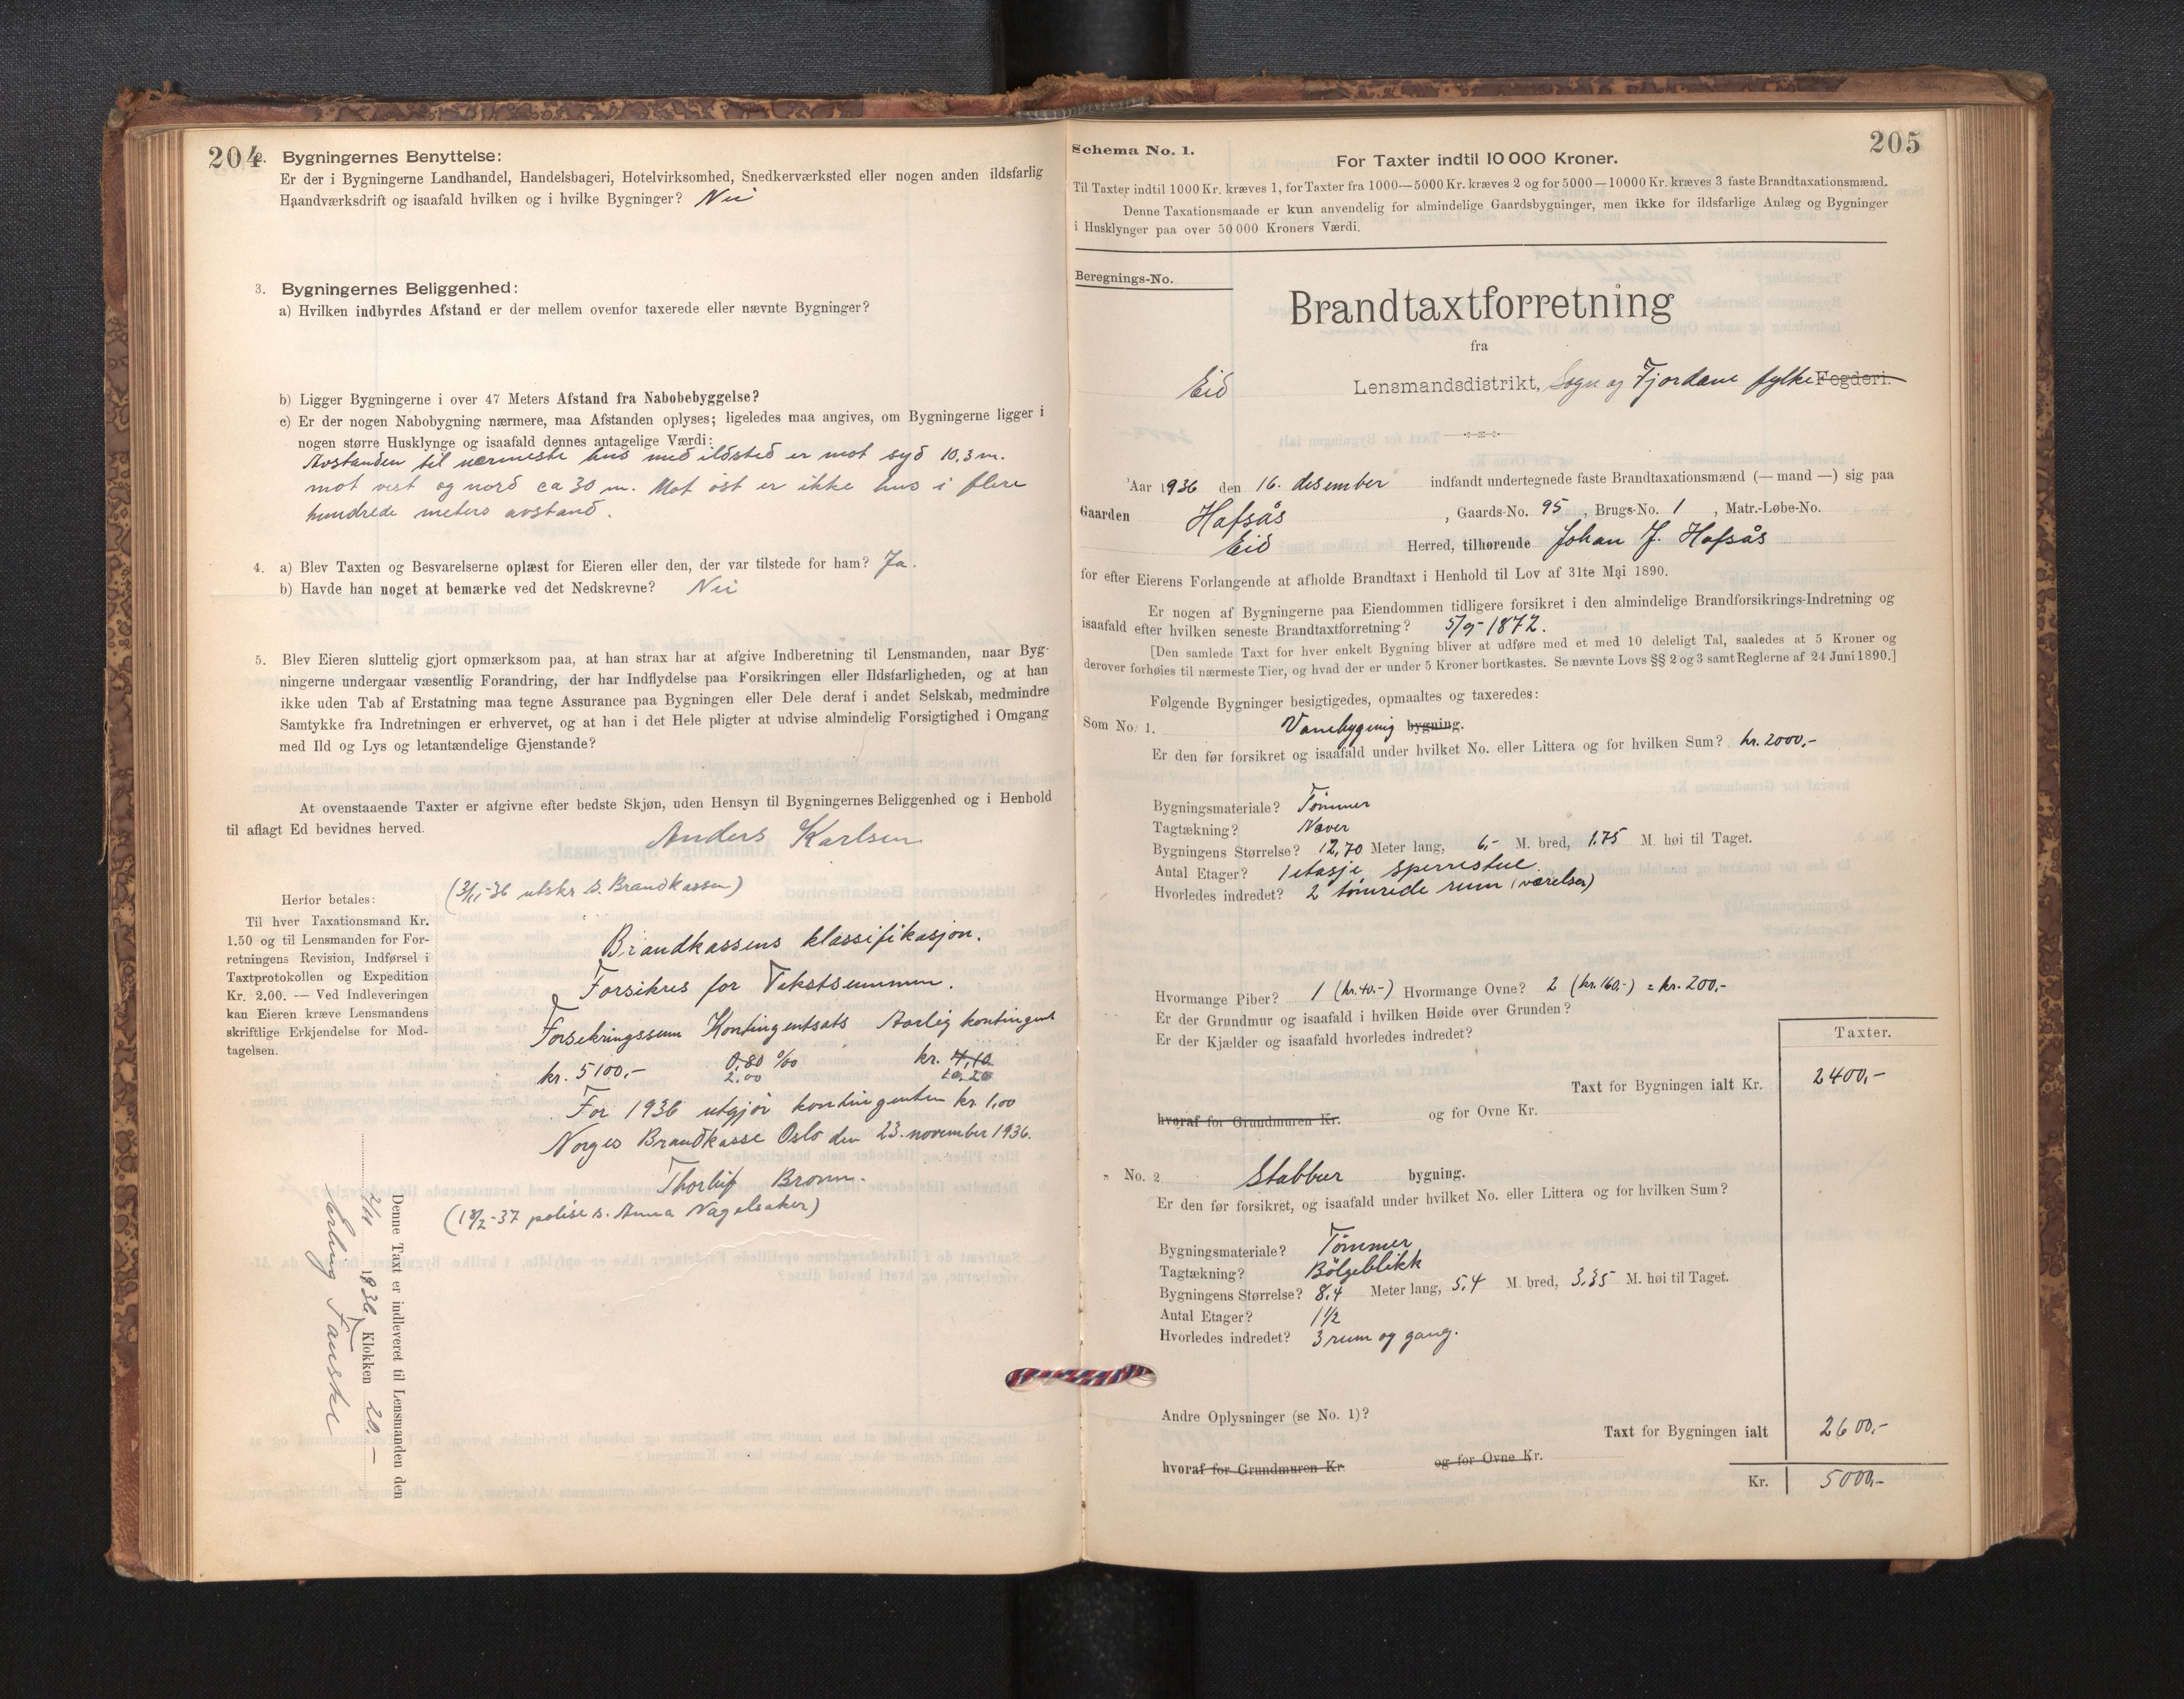 204
2. Bygningernes Benyttelse:
Er der i Bygningerne Landhandel, Handelsbageri, Hotelvirksomhed, Snedkerværksted eller nogen anden ildsfarlig
Haandværksdrift og isaafald hvilken og i hvilke Bygninger? Nei
3. Bygningernes Beliggenhed:
a) Hvilken indbyrdes Afstand er der mellem ovenfor taxerede eller nævnte Bygninger?
b) Ligger Bygningerne i over 47 Meters Afstand fra Nabobebyggelse?
c) Er der nogen Nabobygning nærmere, maa Afstanden oplyses; ligeledes maa angives, om Bygningerne ligger i
nogen større Husklynge og isaafald dennes antagelige Værdi:
Avstanden til nærmeste hus med ildsted er mot syd 10,3 m.
mot vest og nord ca 30 m. Mot øst er ikke hus i flere
hundrede meters avstand.
4. a) Blev Taxten og Besvarelserne oplæst for Eieren eller den, der var tilstede for ham? Ja.
b) Havde han noget at bemærke ved det Nedskrevne? Nei
5. Blev Eieren sluttelig gjort opmærksom paa, at han strax har at afgive Indberetning til Lensmanden, naar Byg-
ningerne undergaar væsentlig Forandring, der har Indflydelse paa Forsikringen eller Ildsfarligheden, og at han
ikke uden Tab af Erstatning maa tegne Assurance paa Bygningen eller Dele deraf i andet Selskab, medmindre
Samtykke fra Indretningen er erhvervet, og at han i det Hele pligter at udvise almindelig Forsigtighed i Omgang
med Ild og Lys og letantændelige Gjenstande?
At ovenstaaende Taxter er afgivne efter bedste Skjøn, uden Hensyn til Bygningernes Beliggenhed og i Henhold
til aflagt Ed bevidnes herved.
Anders Karlsen
(3/11-36 utskr s. Brandkassen)
Herfor betales:
Til hver Taxationsmand Kr.
1.50 og til Lensmanden for For-
retningens Revision, Indførsel i
Taxtprotokollen og Expedition
Kr. 2.00. — Ved Indleveringen
kan Eieren kræve Lensmandens
skriftlige Erkjendelse for Mod-
tagelsen.
Brandkassens klassifikasjon.
Forsikres for Takstsummen.
Forsikringssum Kontingentsats Aarlig kontingent
kr. 5100,- 0,80 ‰ kr. 4,10
2.00 10.20
For 1936 utgjør kontingenten kr 1,00
Norges Brandkasse Oslo den 23. november 1936.
Thorleif Bronn.
(18/2-37 polise s. Anna Nagelsaker)
Denne Taxt er indleveret til Lensmanden den
2/11 1936, Klokken 20.-
Erling Fauske
205
Schema No. 1.
For Taxter indtil 10 000 Kroner.
Til Taxter indtil 1000 Kr. kræves 1, for Taxter fra 1000—5000 Kr. kræves 2 og for 5000—10000 Kr. kræves 3 faste Brandtaxationsmænd.
Denne Taxationsmaade er kun anvendelig for almindelige Gaardsbygninger, men ikke for ildsfarlige Anlæg og Bygninger
i Husklynger paa over 50 000 Kroners Værdi.
Beregnings-No.
Brandtaxtforretning
fra
Eid Lensmandsdistrikt, Sogn og Fjordane fylke Fogderi.
Aar 1936 den 16. desember indfandt undertegnede faste Brandtaxationsmænd (— mand —) sig paa
Gaarden Hafsås, Gaards-No. 95, Brugs-No. 1, Matr.-Løbe-No.
Eid Herred, tilhørende Johan J. Hafsås
for efter Eierens Forlangende at afholde Brandtaxt i Henhold til Lov af 31te Mai 1890.
Er nogen af Bygningerne paa Eiendommen tidligere forsikret i den almindelige Brandforsikrings-Indretning og
isaafald efter hvilken seneste Brandtaxtforretning? 5/9-1872.
[Den samlede Taxt for hver enkelt Bygning bliver at udføre med et med 10 deleligt Tal, saaledes at 5 Kroner og
derover forhøies til nærmeste Tier, og hvad der er under 5 Kroner bortkastes. Se nævnte Lovs §§ 2 og 3 samt Reglerne af 24 Juni 1890.]
Følgende Bygninger besigtigedes, opmaaltes og taxeredes:
Som No. 1. Vanebygnig bygning.
Er den før forsikret og isaafald under hvilket No. eller Littera og for hvilken Sum? kr. 2000,-
Bygningsmateriale? Tømmer
Tagtækning? Never
Bygningens Størrelse? 12,70 Meter lang, 6,- M. bred, 1.75 M. høi til Taget.
Antal Etager? 1 etasje sperrestue
Hvorledes indredet? 2 tømrede rum (værelser)
Hvormange Piber? 1 (kr. 40.-) Hvormange Ovne? 2 (kr. 160,-) = kr. 200,-
Er der Grundmur og isaafald i hvilken Høide over Grunden?
Er der Kjælder og isaafald hvorledes indredet?
Taxter.
Taxt for Bygningen ialt Kr. 2400,-
hvoraf for Grundmuren Kr. og for Ovne Kr.
„ No. 2 Stabbur bygning.
Er den før forsikret, og isaafald under hvilket No. eller Littera og for hvilken Sum?
Bygningsmateriale? Tømmer
Tagtækning? Bølgeblikk
Bygningens Størrelse? 8,4 Meter lang, 5,4 M. bred, 3,35 M. høi til Taget.
Antal Etager? 1 1/2
Hvorledes indredet? 3 rum og gang.
Andre Oplysninger (se No. 1)?
Taxt for Bygningen ialt 2600,-
hvoraf for Grundmuren Kr. og for Ovne Kr.
Kr. 5000,-